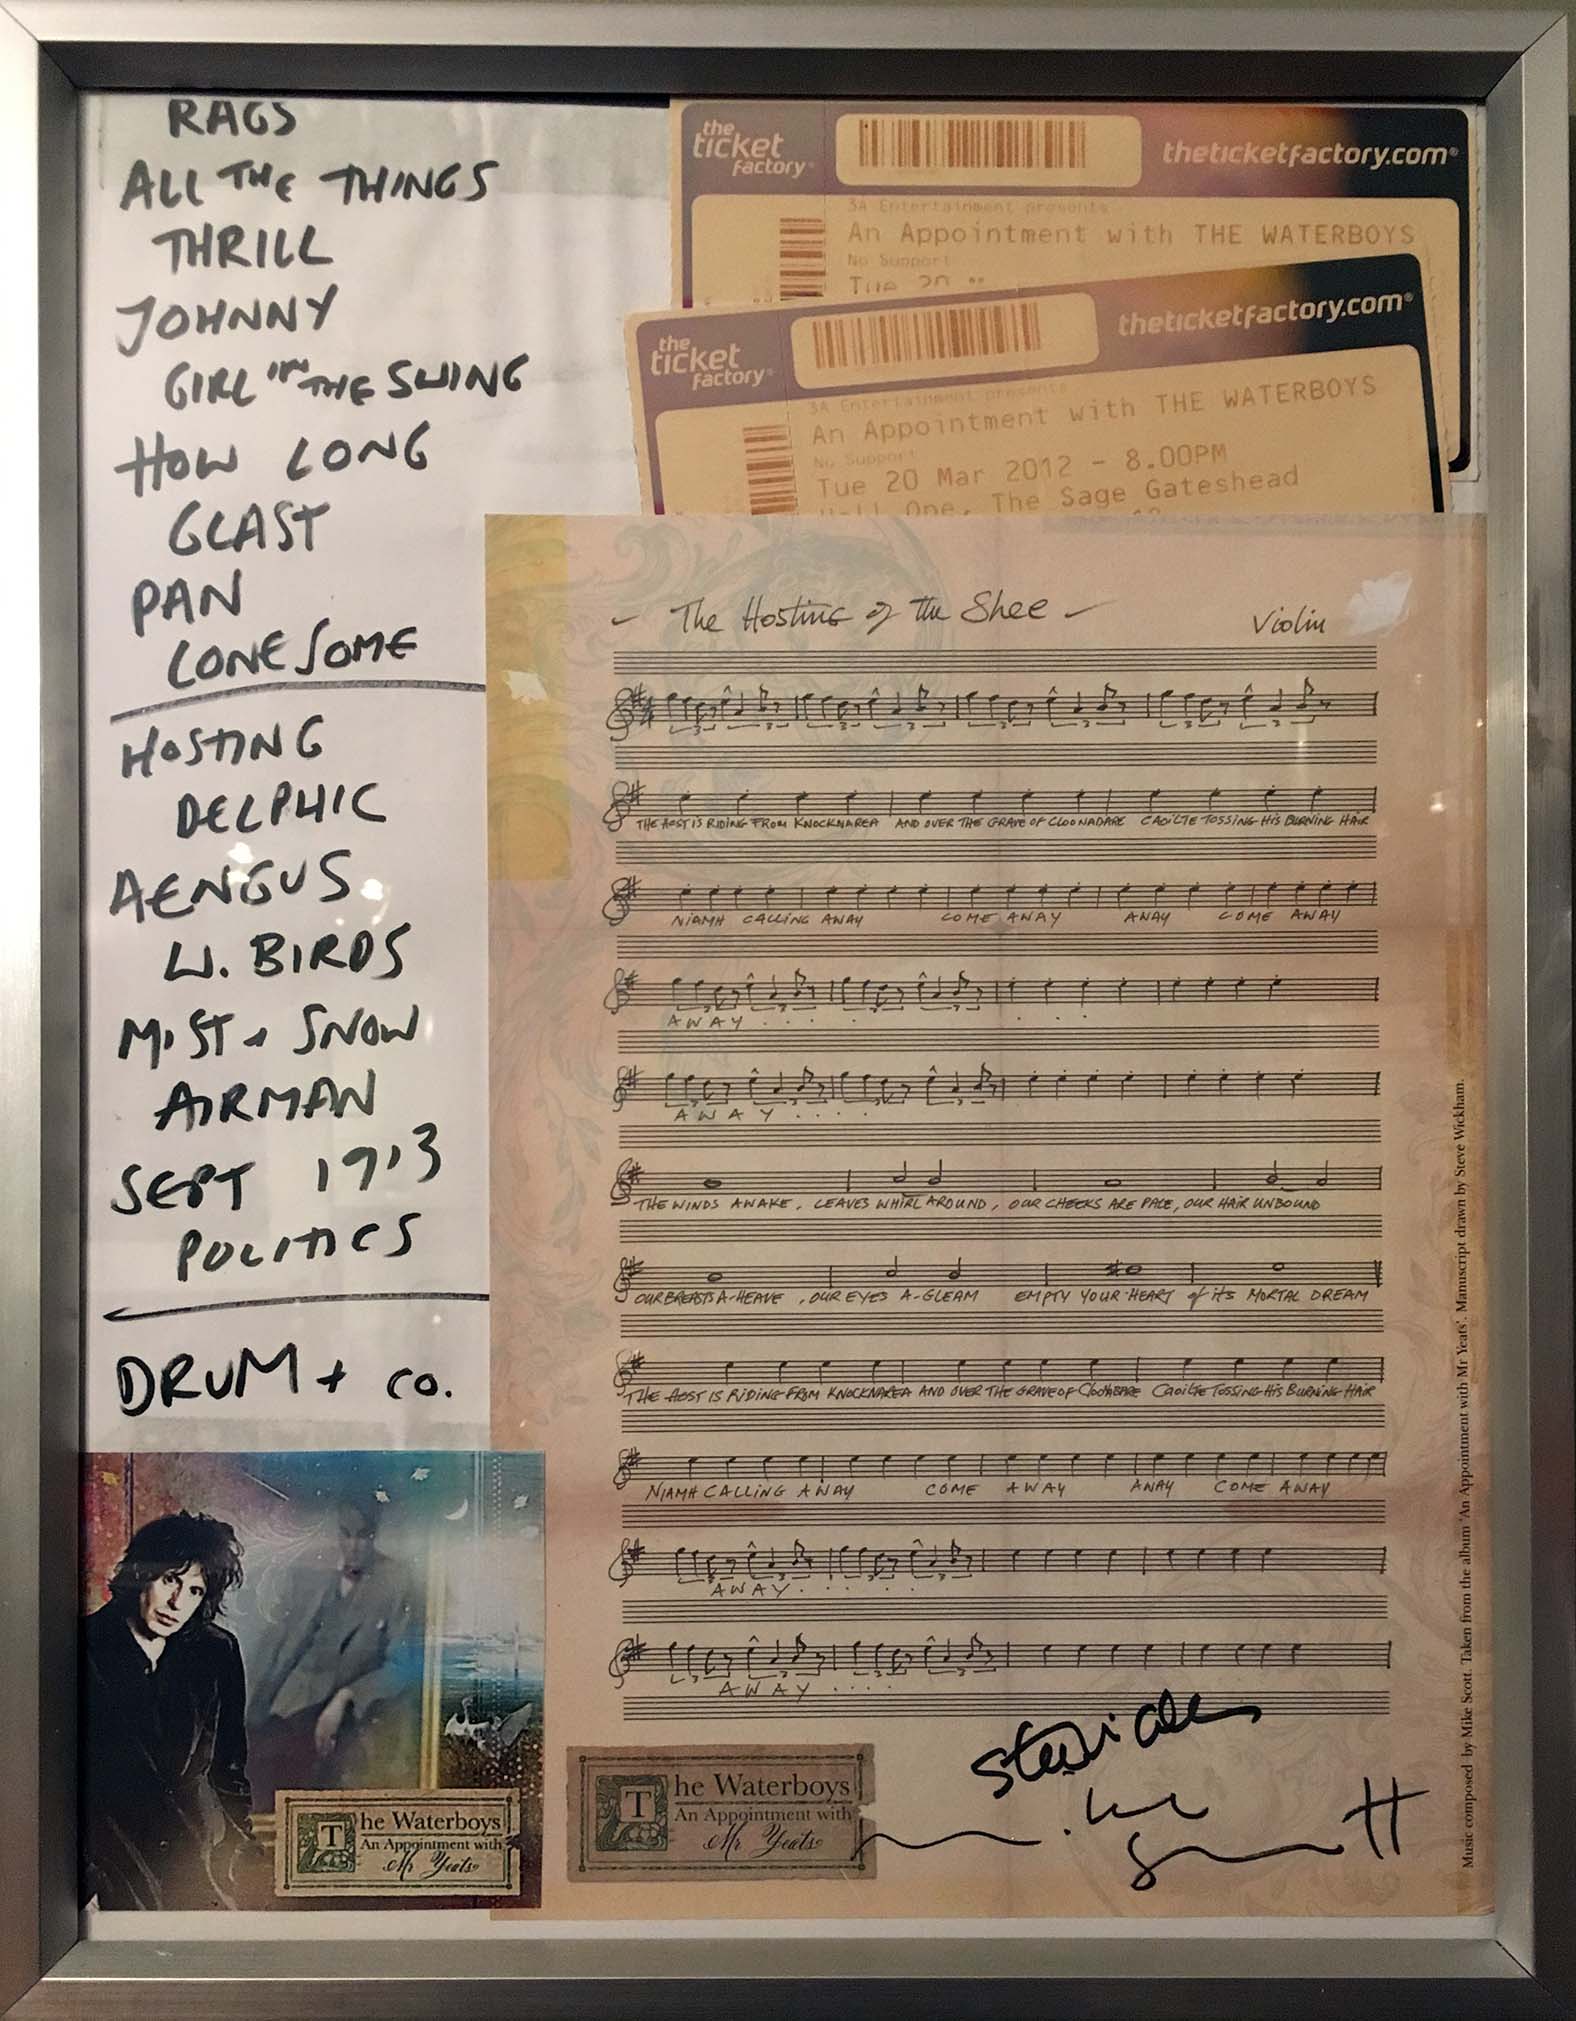 RAGS
ALL THE THINGS
THRILL
JOHNNY
GIRL IN THE SWING
HOW LONG
GLAST
PAN
LONESOME
HOSTING
DELPHIC
AENGUS
W. BIRDS
MIST + SNOW
AIRMAN
SEPT 1913
POLITICS
DRUM + CO.
the ticket factory
theticketfactory.com
3A Entertainment presents
An Appointment with THE WATERBOYS
No Support
Tue 20
the ticket factory
theticketfactory.com
3A Entertainment presents
An Appointment with THE WATERBOYS
No Support
Tue 20 Mar 2012 - 8.00PM
Hall One, The Sage Gateshead
- The Hosting of the Shee -
Violin
THE HOST IS RIDING FROM KNOCKNAREA AND OVER THE GRAVE OF CLOONADARE CAOILTE TOSSING HIS BURNING HAIR
NIAMH CALLING AWAY COME AWAY AWAY COME AWAY
AWAY . . . . . .
AWAY . . . . .
THE WINDS AWAKE, LEAVES WHIRL AROUND, OUR CHEEKS ARE PALE, OUR HAIR UNBOUND
OUR BREASTS A-HEAVE, OUR EYES A-GLEAM EMPTY YOUR HEART of its MORTAL DREAM
THE HOST IS RIDING FROM KNOCKNAREA AND OVER THE GRAVE OF CAOILTE TOSSING HIS BURNING HAIR
NIAMH CALLING AWAY COME AWAY AWAY COME AWAY
AWAY . . . . . .
AWAY . . . . .
The Waterboys
An Appointment with
Mr Yeats
The Waterboys
An Appointment with
Mr Yeats
Music composed by Mike Scott. Taken from the album 'An Appointment with Mr Yeats'. Manuscript drawn by Steve Wickham.